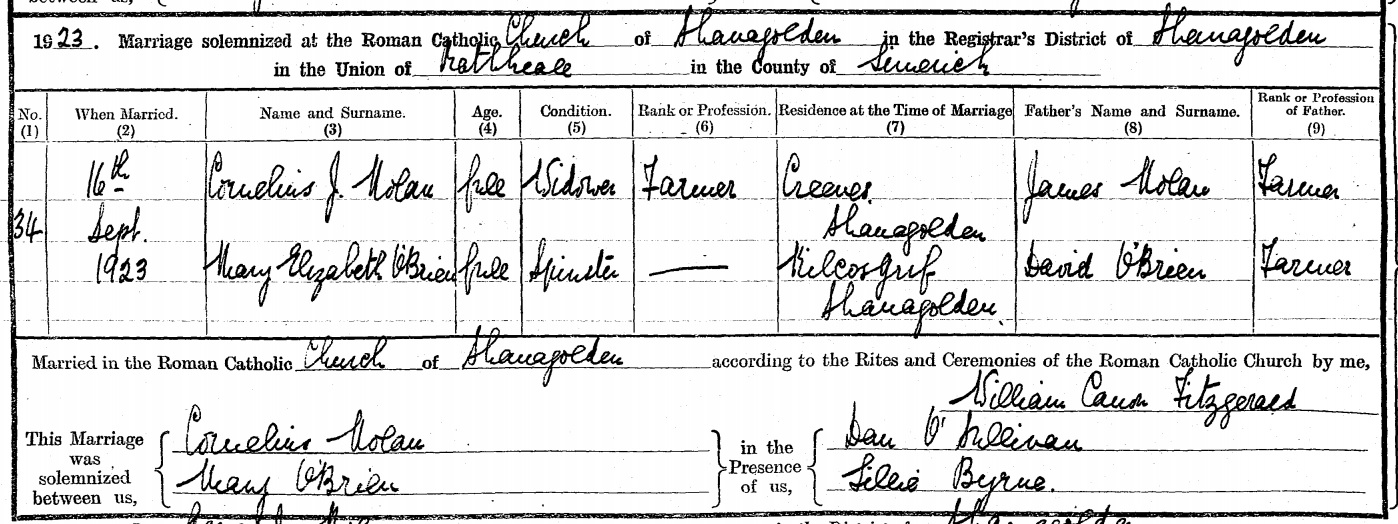 between us,
1923. Marriage solemnized at the Roman Catholic Church of Shanagolden in the Registrar's District of Shanagolden
in the Union of Rathkeale in the County of Limerick
No. (1) When Married. (2) Name and Surname. (3) Age. (4) Condition. (5) Rank or Profession. (6) Residence at the Time of Marriage (7) Father's Name and Surname. (8) Rank or Profession of Father. (9)
16th Cornelius J. Nolan full Widower Farmer Creeves James Nolan Farmer
34 Sept. Shanagolden
1923 Mary Elizabeth O'Brien full Spinster — Kilcosgrif David O'Brien Farmer
Shanagolden.
Married in the Roman Catholic Church of Shanagolden according to the Rites and Ceremonies of the Roman Catholic Church by me,
William Canon Fitzgerald
This Marriage was solemnized between us, { Cornelius Nolan } in the Presence of us, { Dan O'Sullivan
Mary O'Brien Lillie Byrne.